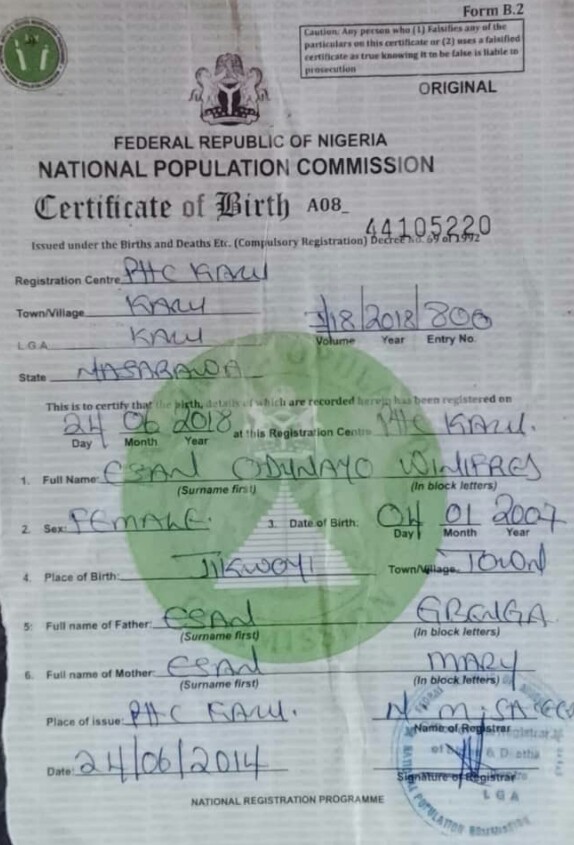 Form B.2
Caution: Any person who (1) Falsifies any of the
particulars on this certificate or (2) uses a falsified
certificate as true knowing it to be false is liable to
prosecution
ORIGINAL
FEDERAL REPUBLIC OF NIGERIA
NATIONAL POPULATION COMMISSION
Certificate of Birth A08_ 44105220
Issued under the Births and Deaths Etc. (Compulsory Registration) Decree No. 69 of 1992
Registration Centre PHC KARU
Town/Village KARU
L G A KARU
/18/2018/800
Volume Year Entry No.
State NASARAWA
This is to certify that the birth, details of which are recorded herein has been registered on
24 06 2018 at this Registration Centre PHC KARU.
Day Month Year
1. Full Name: ESAN ODUNAYO WINIFRED
(Surname first) (In block letters)
2. Sex: FEMALE. 3. Date of Birth: 04 01 2007
Day Month Year
4. Place of Birth: JIKWOYI Town/Village TOWN
5: Full name of Father: ESAN GBENGA
(Surname first) (In block letters)
6. Full name of Mother: ESAN MARY
(Surname first) (In block letters)
Place of issue: PHC KARU.
Name of Registrar
Date: 24/06/2014
Signature of Registrar
L G A
NATIONAL REGISTRATION PROGRAMME